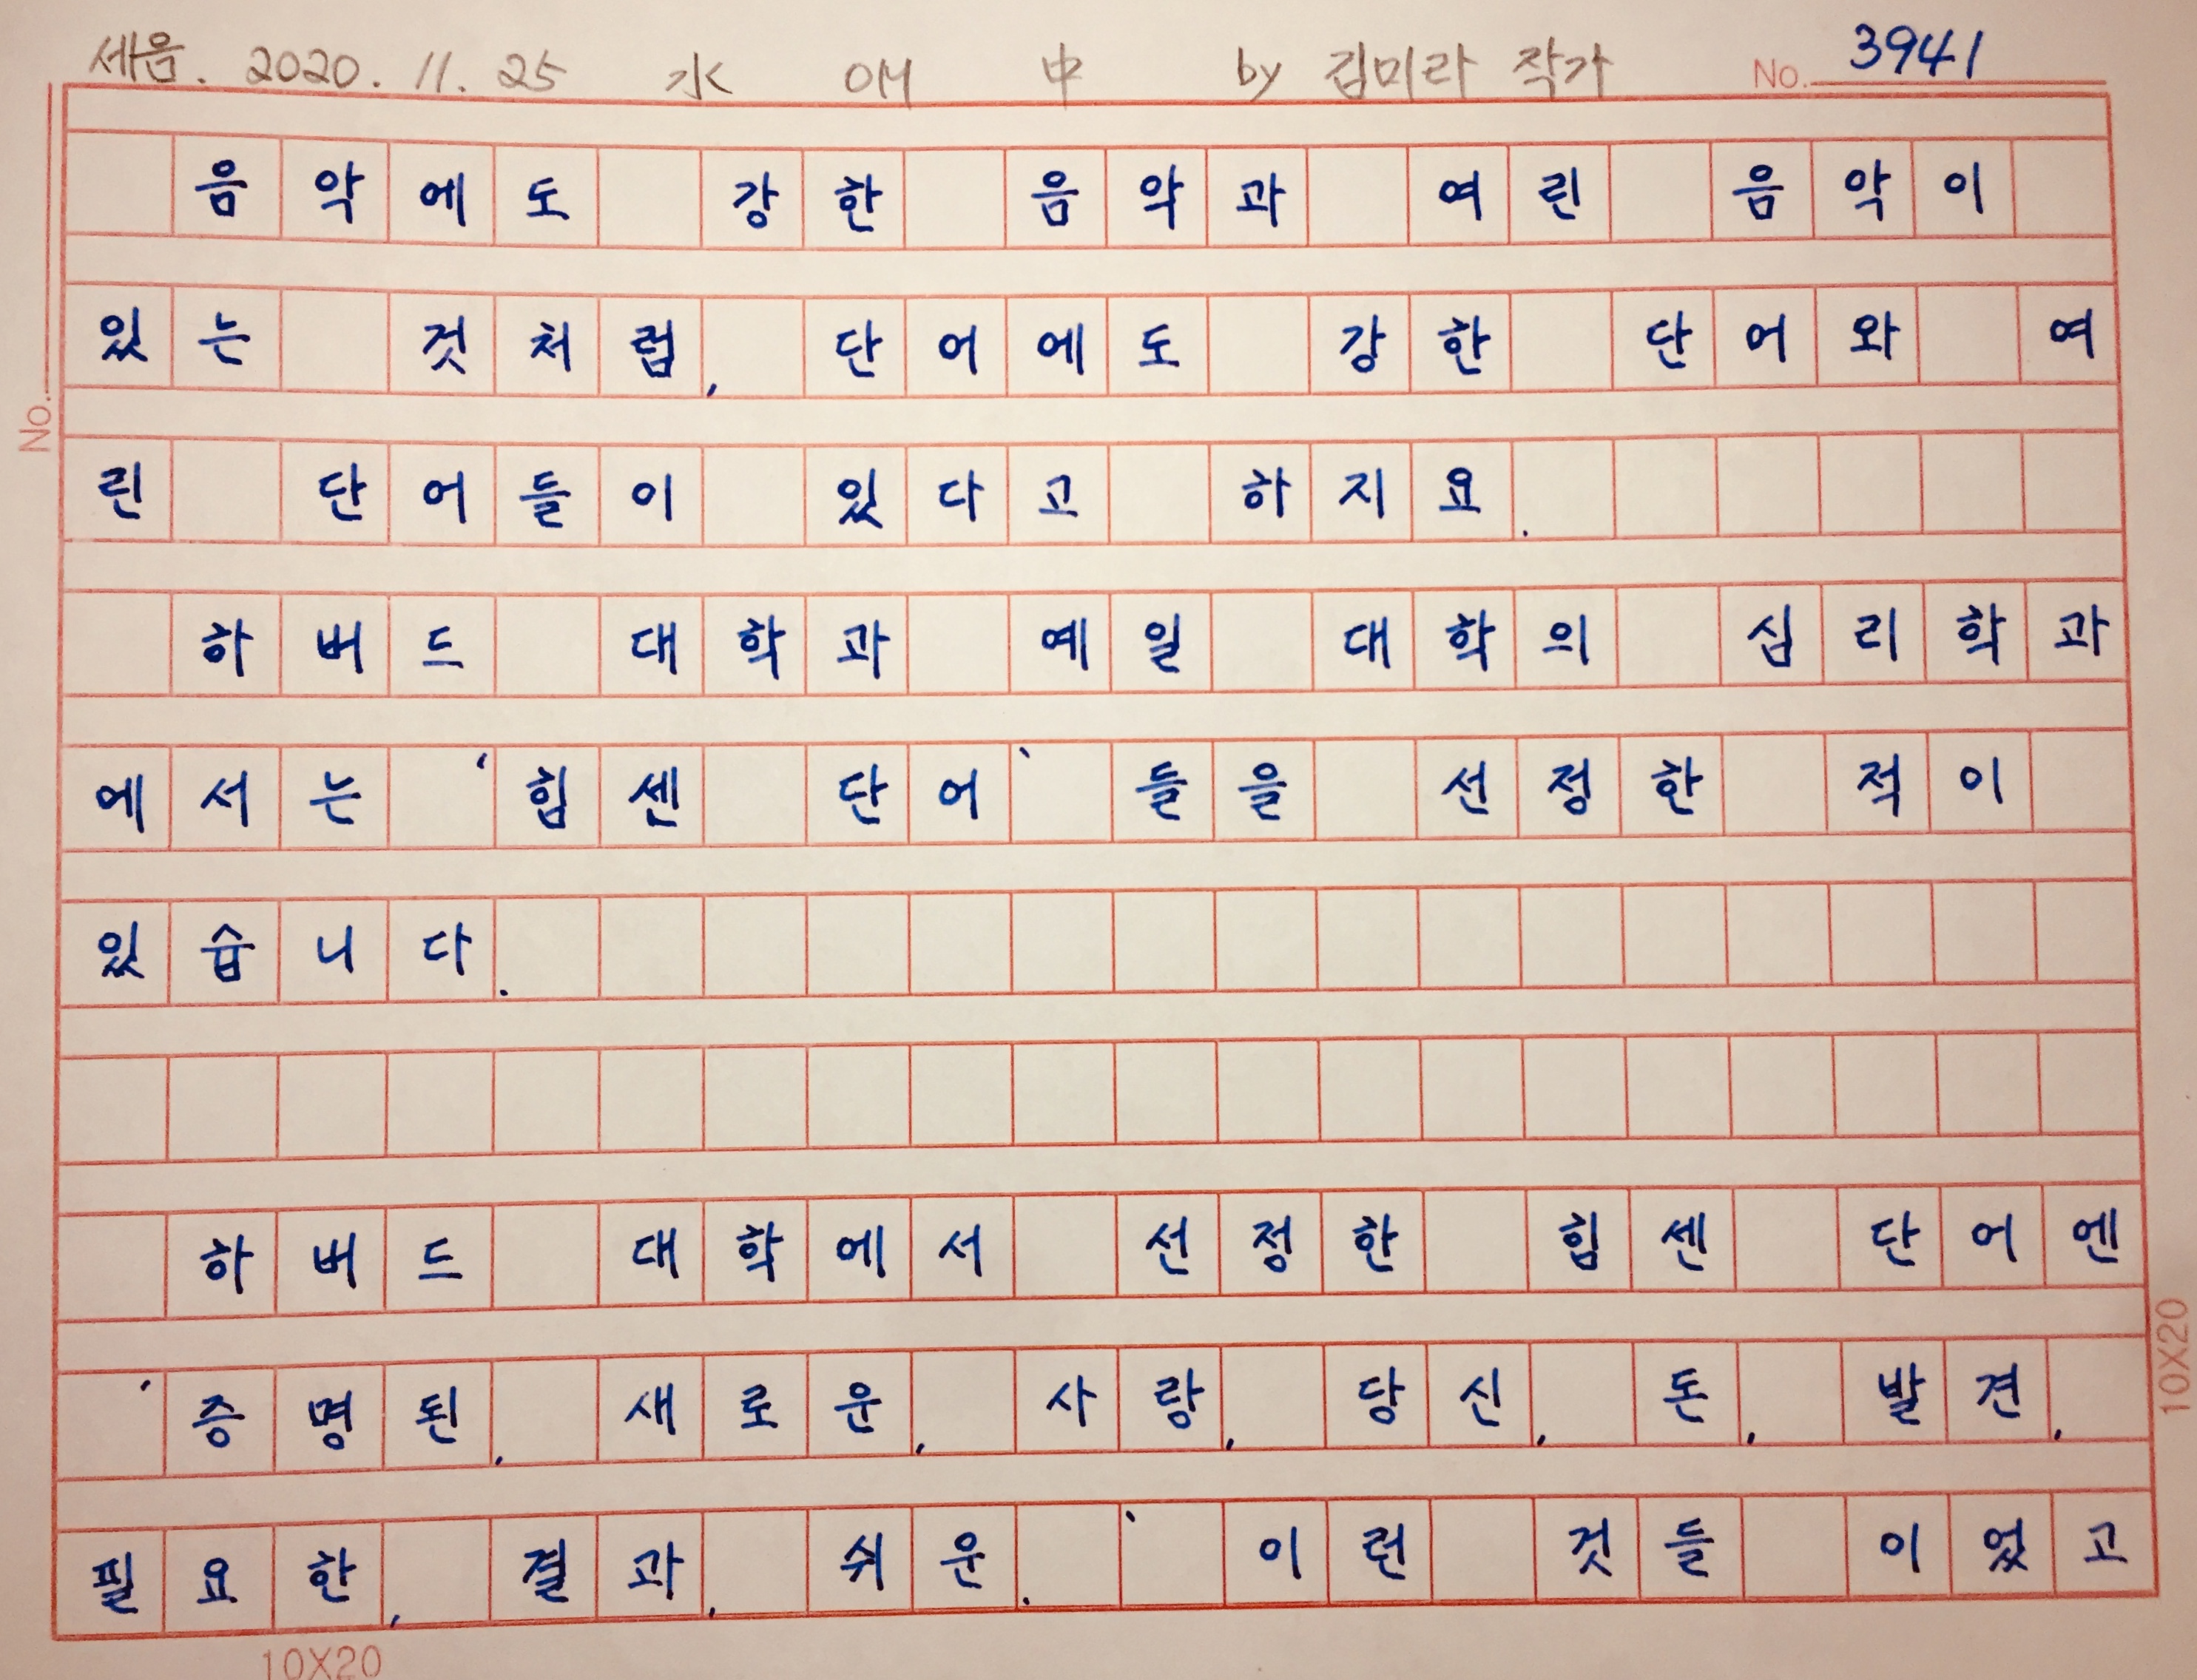 세음. 2020. 11. 25 水 에 中 by 김미라 작가 No. 3941
음악에도 강한 음악과 여린 음악이
있는 것처럼, 단어에도 강한 단어와 여
No.
린 단어들이 있다고 하지요.
하버드 대학과 예일 대학의 심리학과
에서는 ‘힘센 단어’들을 선정한 적이
있습니다.
하버드 대학에서 선정한 힘센 단어엔
‘증명된, 새로운, 사랑, 당신, 돈, 발견,
필요한, 결과, 쉬운.’ 이런 것들 이었고
10X20
10X20